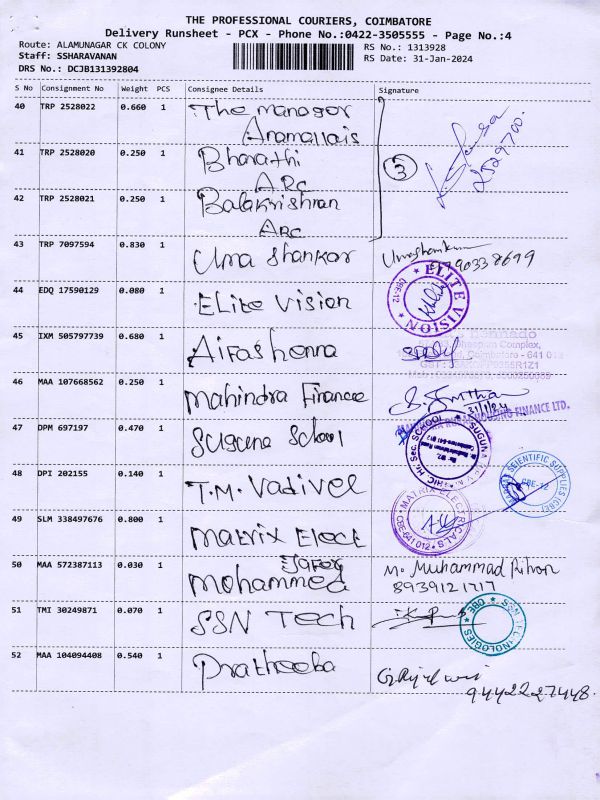 THE PROFESSIONAL COURIERS, COIMBATORE
Delivery Runsheet - PCX - Phone No.:0422-3505555 - Page No.:4
Route: ALAMUNAGAR CK COLONY
Staff: SSHARAVANAN
DRS No.: DCJB131392804
RS No.: 1313928
RS Date: 31-Jan-2024
S No Consignment No Weight PCS Consignee Details Signature
40 TRP 2528022 0.660 1 The manager
Aramallais
41 TRP 2528020 0.250 1 Bharathi
ARC
3
42 TRP 2528021 0.250 1 Balakrishnan
ARC
43 TRP 7097594 0.830 1 Uma Shankar Umashankar
44 EDQ 17590129 0.080 1 Elite Vision
ELITE VISION
CBE-12
45 IXM 505797739 0.680 1 Aifashonna
Complex,
Coimbatore - 641 012
46 MAA 107668562 0.250 1 Mahindra Finance
31/1/24
FINANCE LTD.
47 DPM 697197 0.470 1 Suguna School
SUGUNA
Hr. Sec. SCHOOL
48 DPI 202155 0.140 1 T.M. Vadivel
SCIENTIFIC SUPPLIES (CBE)
CBE-12
49 SLM 338497676 0.800 1 Matrix Elect
MATRIX ELECTRICALS
CBE-641 012
50 MAA 572387113 0.030 1 Mohammed
Jafer
M. Muhammad Rihon
8939121717
51 TMI 30249871 0.070 1 SSN Tech
SSN TECHNOLOGIES
52 MAA 104094408 0.540 1 Pratheeba
9442227448